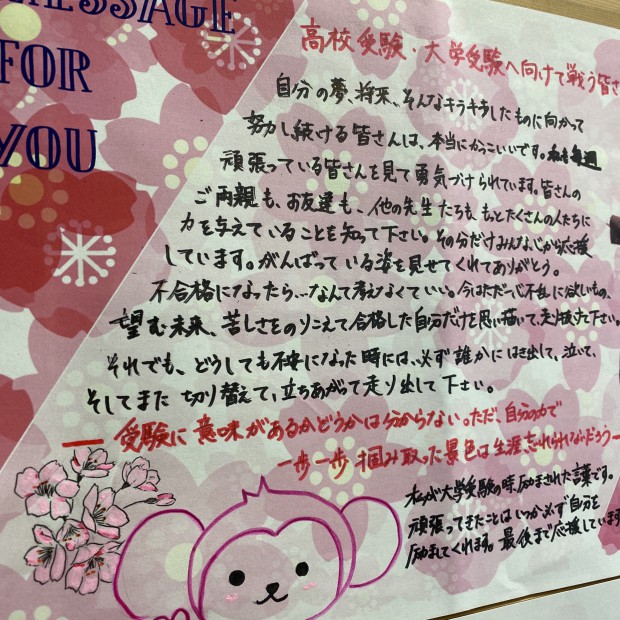 MESSAGE
FOR
YOU
高校受験・大学受験へ向けて戦う皆さ
自分の夢、将来、そんなキラキラしたものに向かって
努力し続ける皆さんは、本当にかっこいいです。私も毎週
頑張っている皆さんを見て勇気づけられています。皆さんの
ご両親も、お友達も、他の先生たちも、もっとたくさんの人たちに
力を与えていることを知って下さい。その分だけみんな心から応援
しています。がんばっている姿を見せてくれてありがとう。
不合格になったら…なんて考えなくていい。今はただ一心不乱に欲しいもの、
望む未来、苦しさをのりこえて合格した自分だけを思い描いて、走り抜けて下さい。
それでも、どうしても不安になった時には、必ず誰かにはき出して、泣いて、
そしてまた切り替えて、立ちあがって走り出して下さい。
―受験に意味があるかどうかは分からない。ただ、自分の力で
一歩一歩掴み取った景色は生涯忘れられないだろう―
私が大学受験の時、励まされた言葉です。
頑張ってきたことはいつか必ず自分を
励ましてくれます。最後まで応援しています